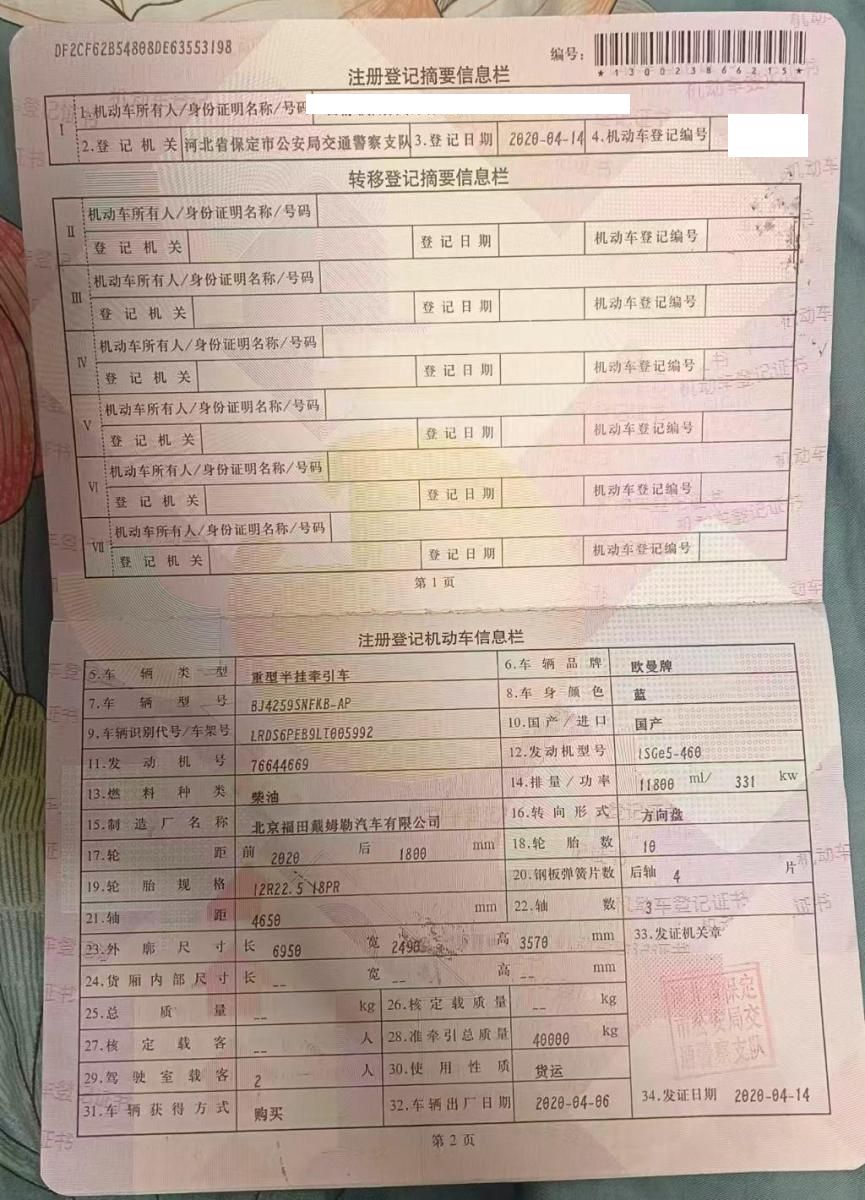 DF2CF62B54808DE63553198
编号：
*130023866215*
注册登记摘要信息栏
Ⅰ
1.机动车所有人/身份证明名称/号码
2.登记机关 河北省保定市公安局交通警察支队 3.登记日期 2020-04-14 4.机动车登记编号
转移登记摘要信息栏
Ⅱ
机动车所有人/身份证明名称/号码
登记机关 登记日期 机动车登记编号
Ⅲ
机动车所有人/身份证明名称/号码
登记机关 登记日期 机动车登记编号
Ⅳ
机动车所有人/身份证明名称/号码
登记机关 登记日期 机动车登记编号
Ⅴ
机动车所有人/身份证明名称/号码
登记机关 登记日期 机动车登记编号
Ⅵ
机动车所有人/身份证明名称/号码
登记机关 登记日期 机动车登记编号
Ⅶ
机动车所有人/身份证明名称/号码
登记机关 登记日期 机动车登记编号
第1页
注册登记机动车信息栏
5.车辆类型 重型半挂牵引车 6.车辆品牌 欧曼牌
7.车辆型号 BJ4259SNFKB-AP 8.车身颜色 蓝
9.车辆识别代号/车架号 LRDS6PEB9LT005992 10.国产/进口 国产
11.发动机号 76644669 12.发动机型号 ISGe5-460
13.燃料种类 柴油 14.排量/功率 11800 ml/ 331 kw
15.制造厂名称 北京福田戴姆勒汽车有限公司 16.转向形式 方向盘
17.轮距 前 2020 后 1800 mm 18.轮胎数 10
19.轮胎规格 12R22.5 18PR 20.钢板弹簧片数 后轴 4 片
21.轴距 4650 mm 22.轴数 3
23.外廓尺寸 长 6950 宽 2490 高 3570 mm 33.发证机关章
24.货厢内部尺寸 长 -- 宽 -- 高 -- mm
25.总质量 -- kg 26.核定载质量 -- kg
27.核定载客 -- 人 28.准牵引总质量 40000 kg
29.驾驶室载客 2 人 30.使用性质 货运
31.车辆获得方式 购买 32.车辆出厂日期 2020-04-06 34.发证日期 2020-04-14
河北省保定
市公安局交
通警察支队
第2页